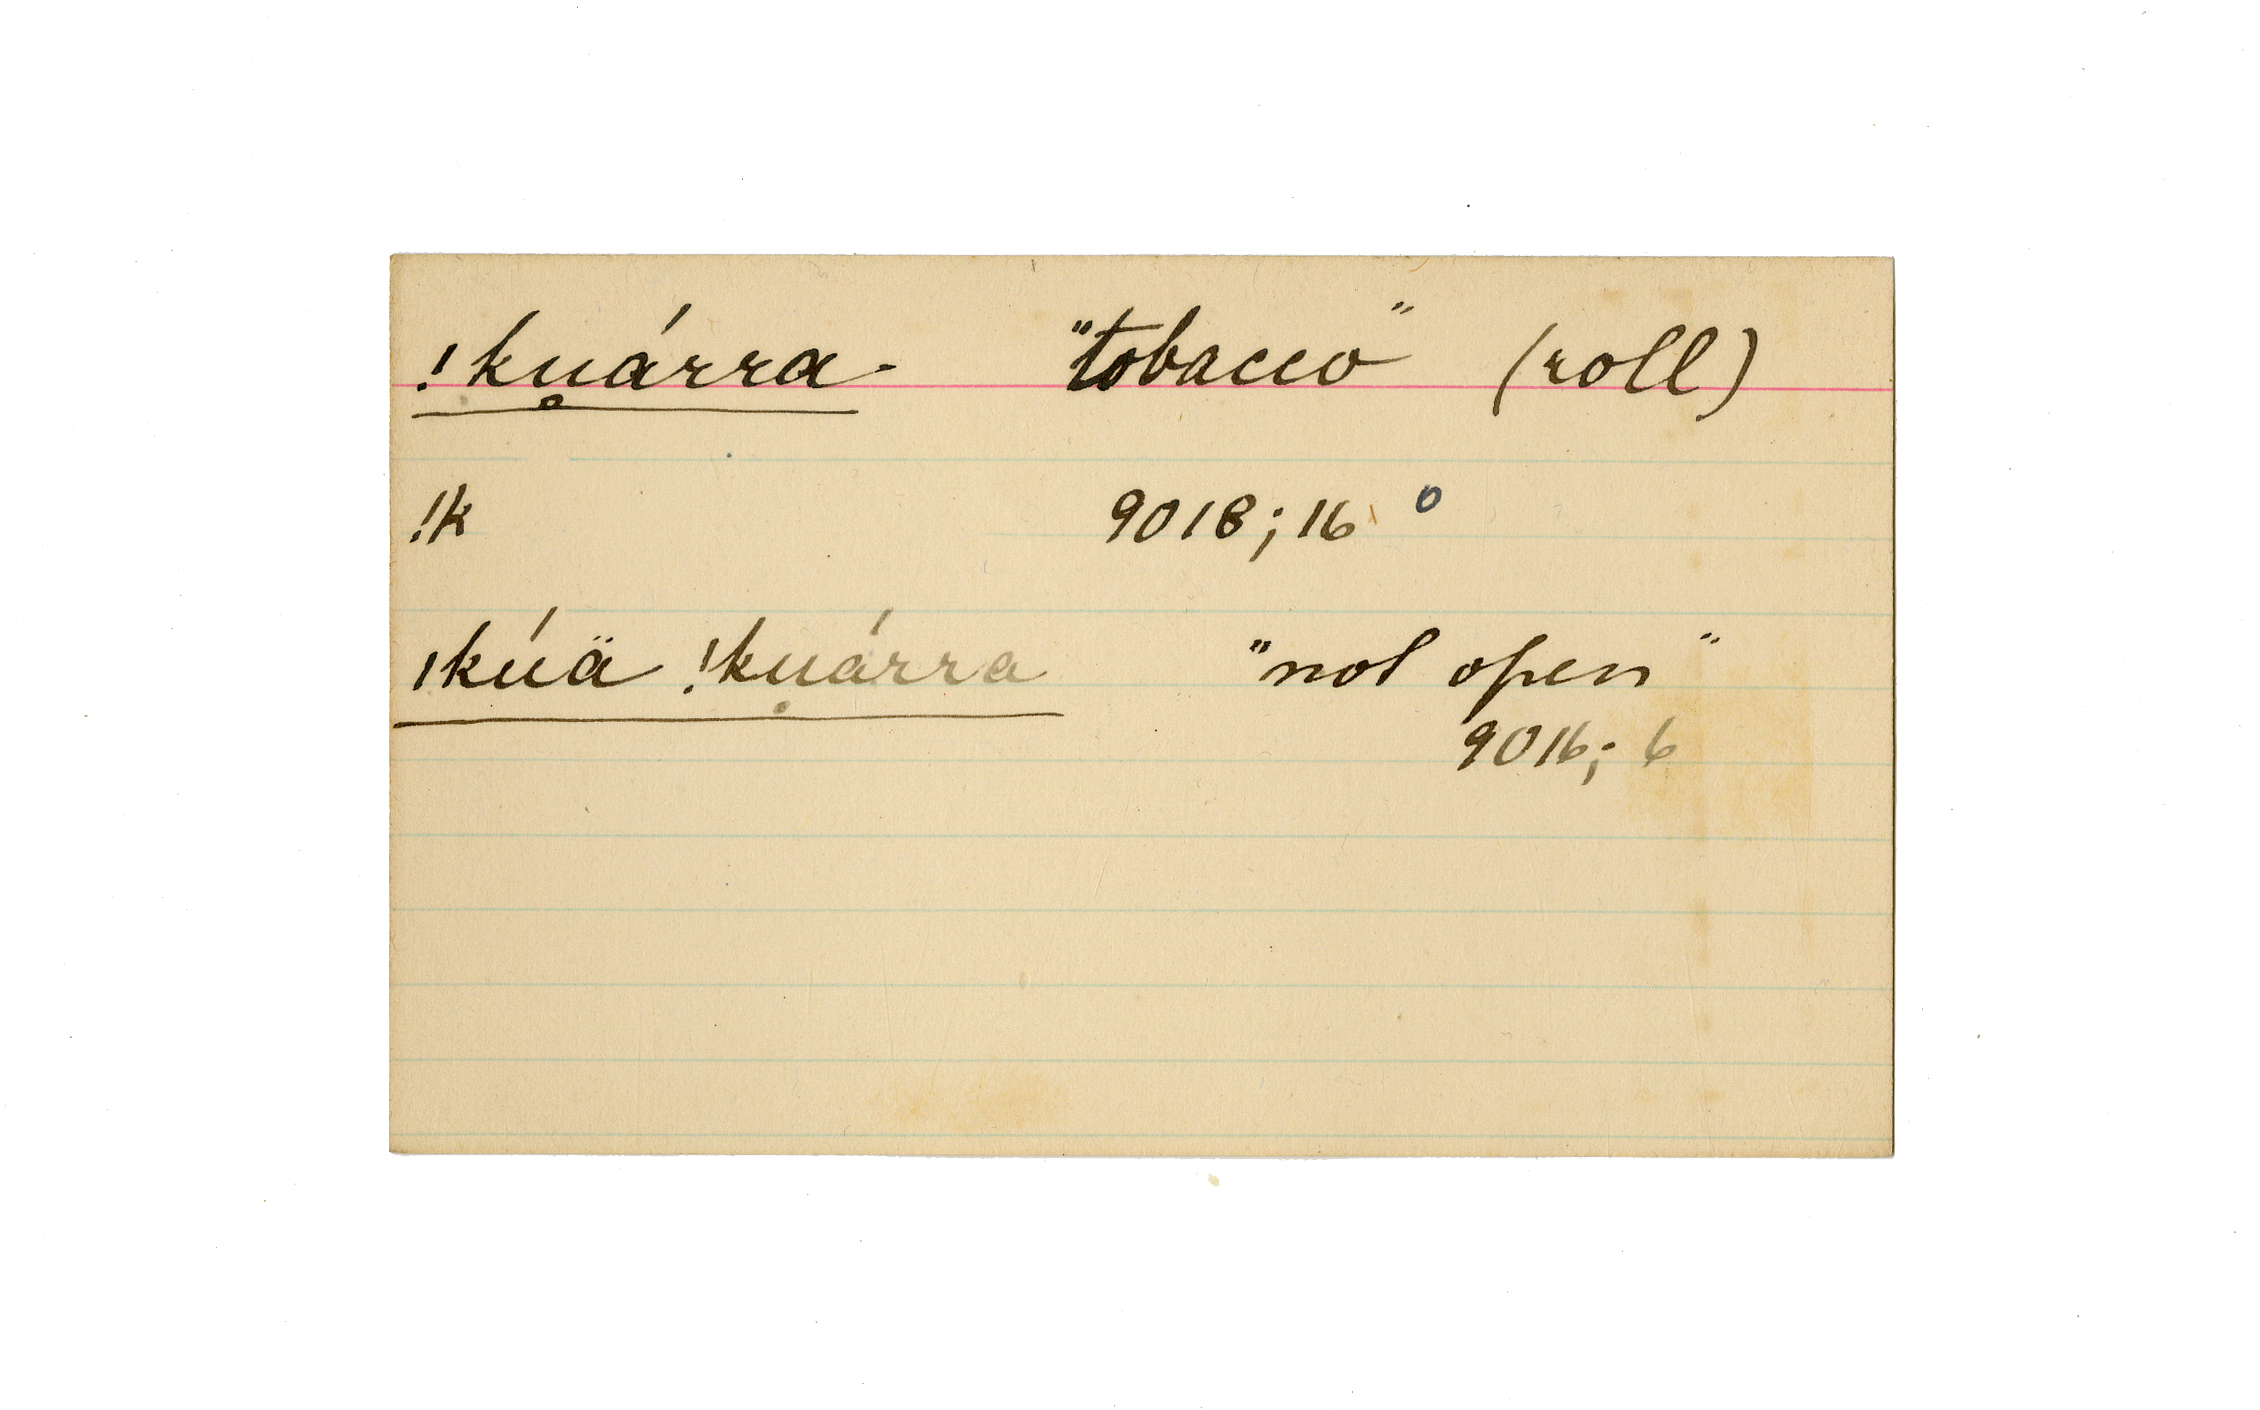 !kụárra- "tobacco" (roll)
!k 9018; 16 o
ıkúä !kụárra "not open"
9016; 6